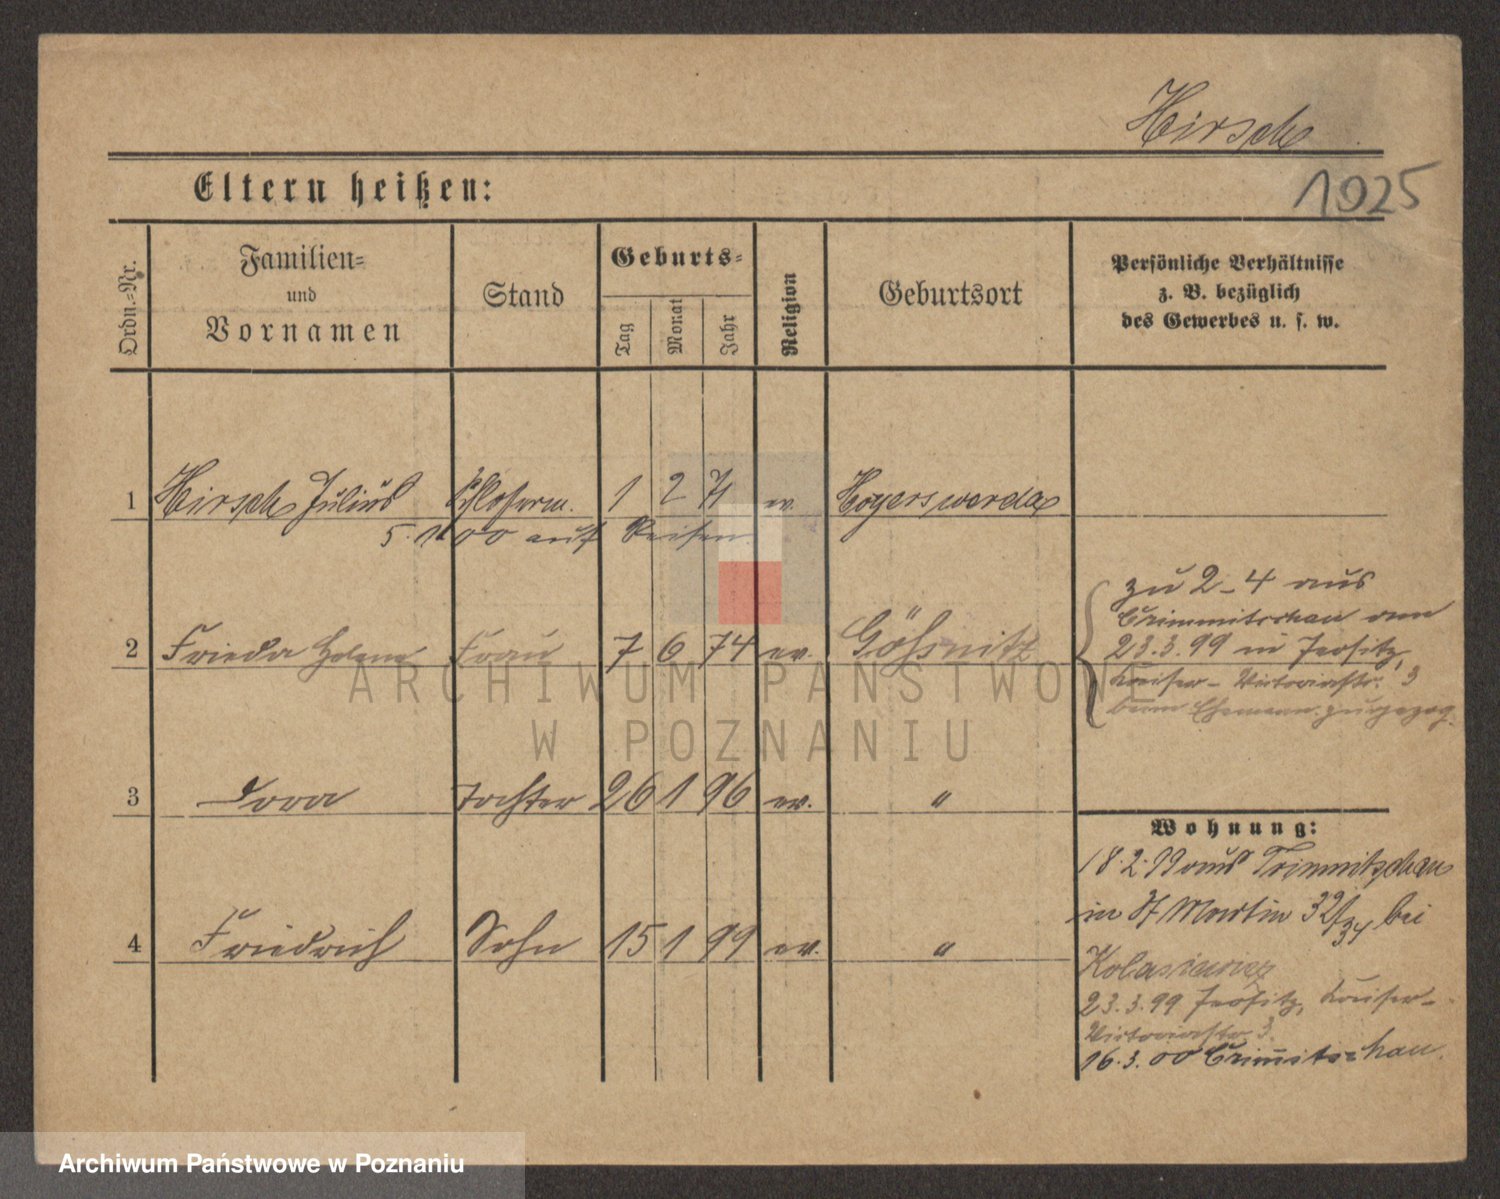 Hirsch
1025
Eltern heißen:
Ordn.=Nr.
Familien=
und
Vornamen
Stand
Geburts=
Tag
Monat
Jahr
Religion
Geburtsort
Persönliche Verhältnisse
z. B. bezüglich
des Gewerbes u. s. w.
1 Hirsch Julius 1 2 71 ev. Hoyerswerda
auf Reisen
zu 2-4 aus
Crimmitschau am
2 Frieda Helene Frau 7 6 74 ev. Gößnitz
23.3.99 in Jersitz,
Kaiser- Victoriastr. 3
beim Ehemann zugezog.
3 Dora Tochter 26 1 96 ev. "
Wohnung:
18.2.99 aus Crimmitschau
in St Martin 32/34 bei
4 Friedrich Sohn 15 1 99 ev. "
23.3.99 Jersitz, Kaiser-
Victoriastr. 3.
16.3.00 Crimmitschau.
ARCHIWUM PAŃSTWOWE
W POZNANIU
Archiwum Państwowe w Poznaniu